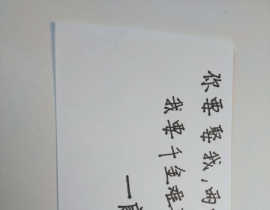 你要娶我,
我要千金难
一